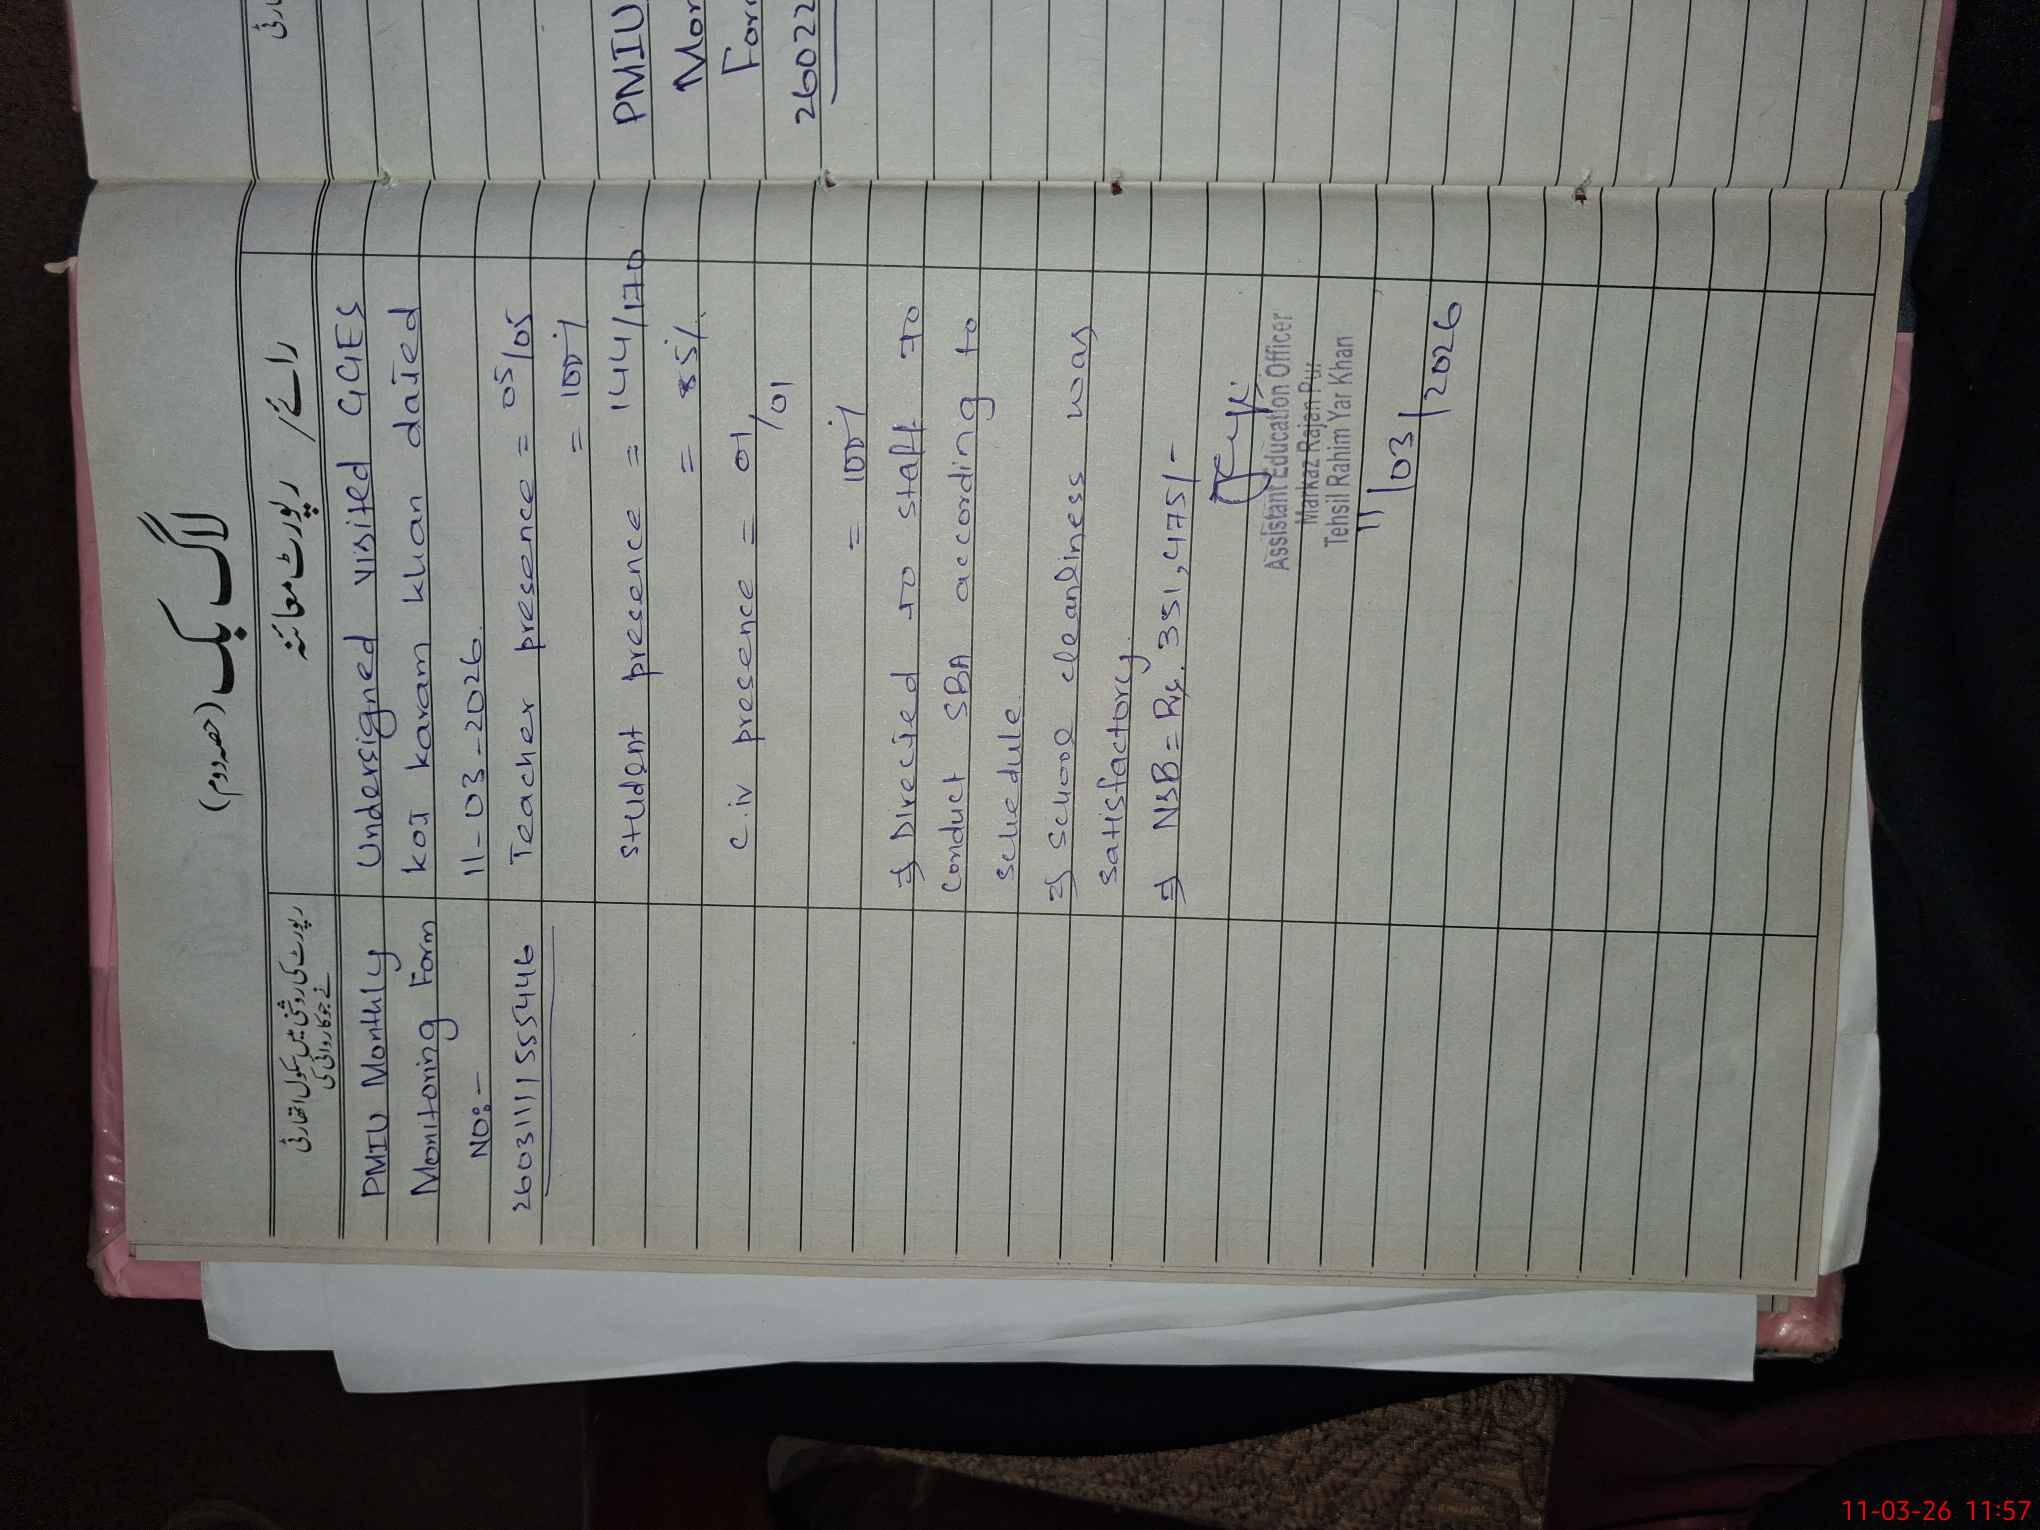 لاگ بک (حصہ دوم)
رپورٹ کی روشنی میں سکول اتھارٹی
نے جو کارروائی کی
رپورٹ معائنہ / رائے
PMIU Monthly
Monitoring Form
NO:-
2603111155446
Undersigned visited GGES
KOT Karam Khan dated
11-03-2026.
Teacher presence = 05/05
= 100%
Student presence = 144/170
= 85%.
C.iv presence = 01/01
= 100%
⇒ Directed to staff to
Conduct SBA according to
Schedule.
⇒ School cleanliness was
Satisfactory.
⇒ NSB = Rs. 351,475/-
Assistant Education Officer
Markaz Rajan Pur
Tehsil Rahim Yar Khan
11/03/2026
PMIU
Mon
Form
26022
11-03-26 11:57